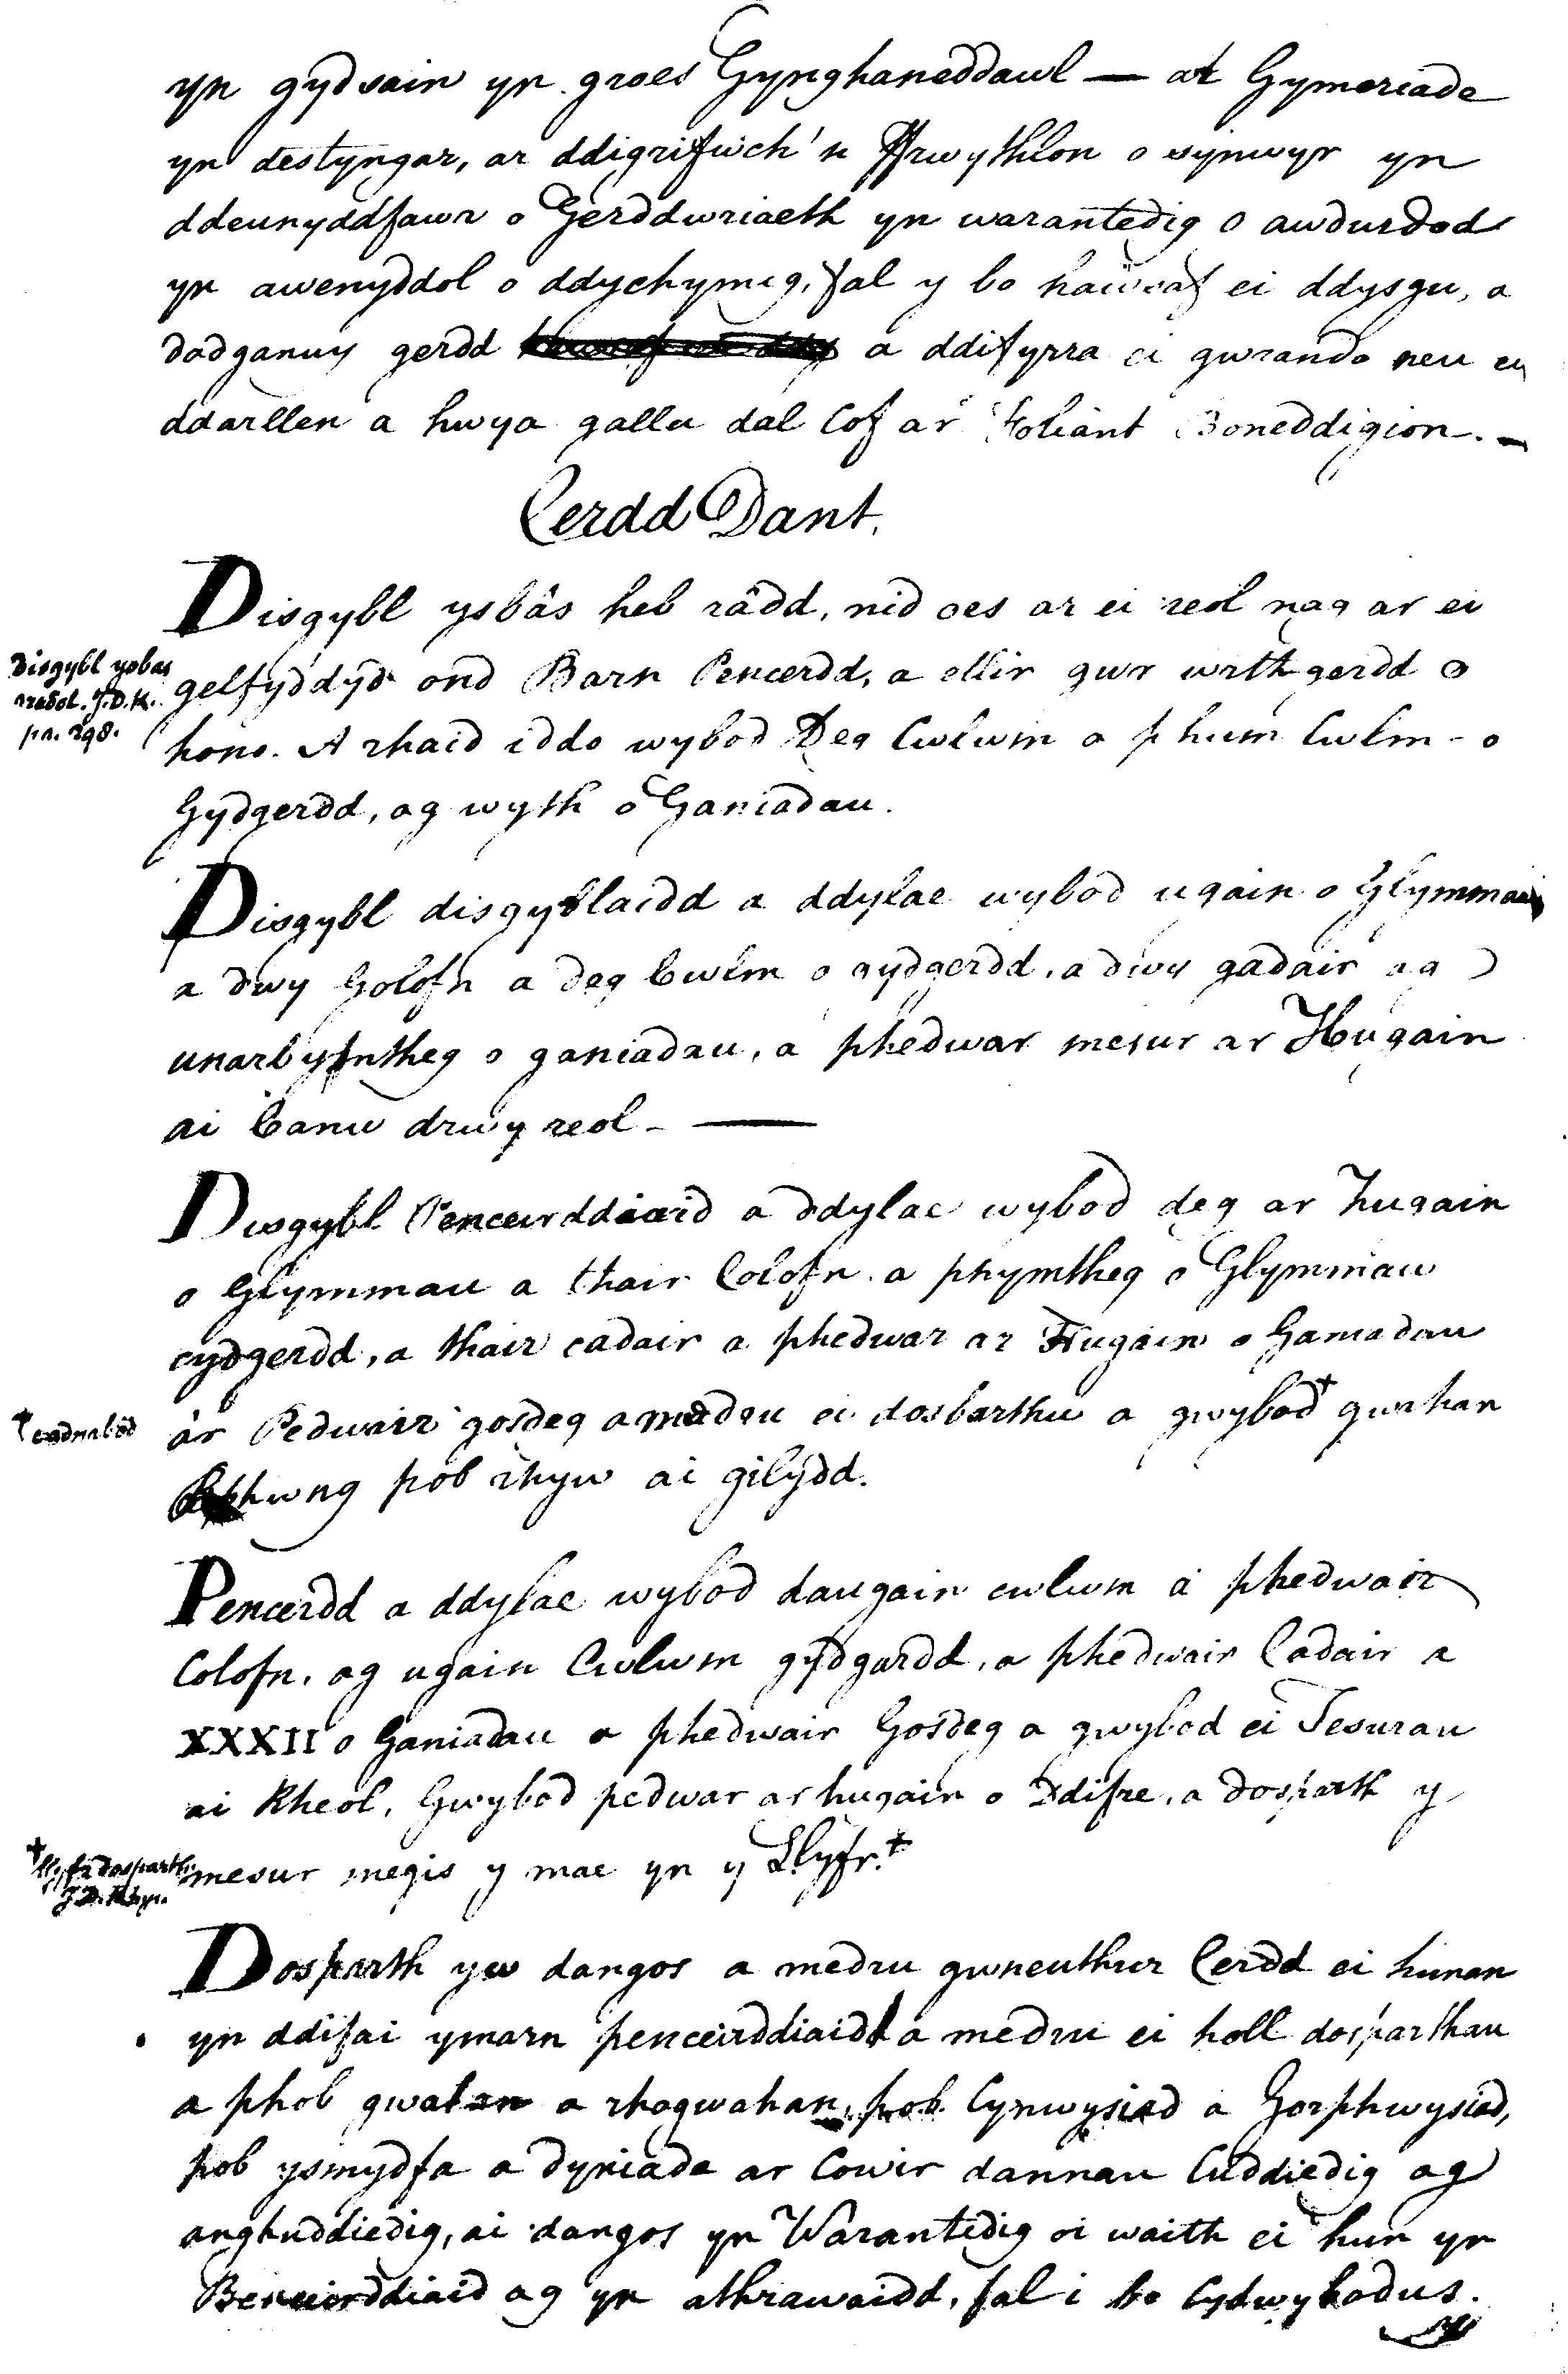 yn gydsain yn groes Gynghaneddawl — at Gymeriade
yn destyngar, ar ddigrifwch'n ffrwythlon o synwyr yn
ddeunyddfawr o Gerddwriaeth yn warantedig o awdurdod
yn awenyddol o ddychymig, fal y bo hawsaf ei ddysgu, a
dadganuy gerdd a ddifyrra ei gwrando neu eu
ddarllen a hwya gallu dal Cof ar Foliant Boneddigion. —
Cerdd Dant.
Disgybl ysbâs heb râdd, nid oes ar ei reol nag ar ei
Disgybl ysbas
gelfyddyd ond Barn Pencerdd, a ellir gwr wrth gerdd o
radol. J.D.R.
pn. 298.
hono. A rhaid iddo wybod Deg Cwlwm a phum Cwlm - o
Gydgerdd, ag wyth o Ganiadau.
Disgybl disgyblaidd a ddylae wybod ugain o Glymmau
a dwy Golofn a deg Cwlm o gydgerdd, a dwy gadair ag
unarbymtheg o ganiadau, a phedwar mesur ar Hugain
ai Canu drwy reol - —
Disgybl Penceirddiaid a ddylae wybod deg ar hugain
o Glymmau a thair Colofn a phymtheg o Glymmau
cydgerdd, a thair cadair a phedwar ar Hugain o Ganiadau
ár Pedwair gosdeg a medru ei dosbarthu a gwybod † gwahan
† cadnabod
Rhwng pob rhyw ai gilydd.
Pencerdd a ddylae wybod daugain cwlwm a phedwair
Colofn, ag ugain Cwlwm gydgerdd, a phedwair Cadair a
XXXII o Ganiadau a phedwair Gosdeg a gwybod ei Mesurau
ai Rheol, Gwybod pedwar ar hugain o Ddifre, a dosparth y
mesur megis y mae yn y Llyfr. †
† llyfr dosparth
J.D. Rhys.
Dosparth yw dangos a medru gwneuthur Cerdd ei hunan
yn ddifai ymarn penceirddiaid a medru ei holl dosparthau
a phob gwahan a rhagwahan, pob Cynwysiad a Gorphwysiad,
pob ysmydfa a dyniada ar Cowir dannau Cuddiedig ag
anghuddiedig, ai dangos yn Warantedig oi waith ei hun yn
Benceirddiaid ag yn athrawaidd, fal i bo Cydwybodus.